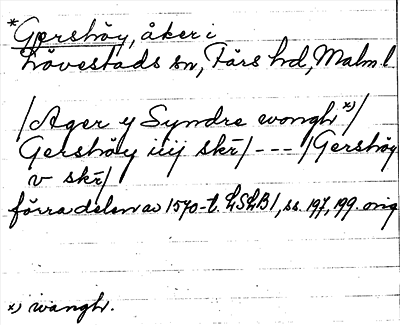 *Gershöy, åker i
Lövestads sn, Färs hd, Malm l.
/Ager y Syndre wongh x)/
Gershöy iiij skr̄/ - - - /Gershöy
v skr̄/
förra delen av 1570-t. LSLB 1, ss. 197, 199. orig
x) wangh.